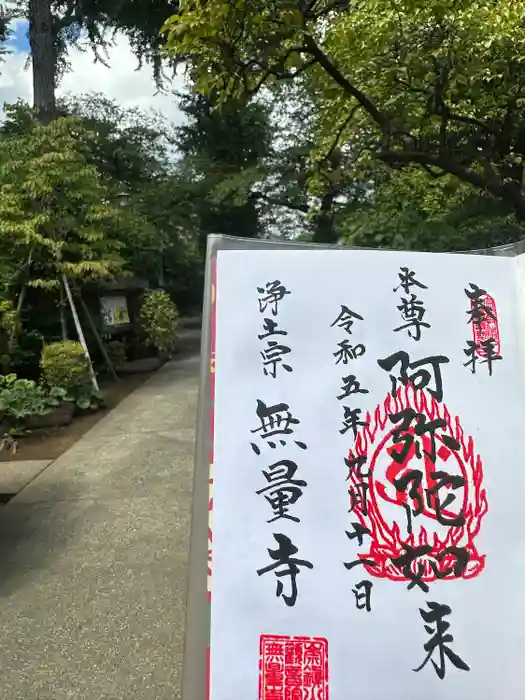 奉拝
本尊
阿弥陀如来
令和五年九月十一日
浄土宗
無量寺